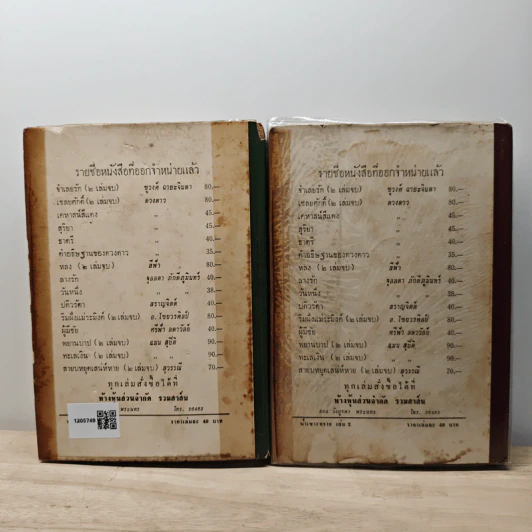 รายชื่อหนังสือที่ออกจำหน่ายแล้ว
จำเลยรัก (๒ เล่มจบ) ชูวงศ์ ฉายะจินดา 80.—
เชลยศักดิ์ (๒ เล่มจบ) ดวงดาว 80.—
เคหาสน์สีแดง " 45.—
สุริยา " 45.—
ธาตรี " 40.—
คำอธิษฐานของดวงดาว " 40.—
หลง (๒ เล่มจบ) สีฟ้า 80.—
ลางรัก จุลลดา ภักดีภูมินทร์ 40.—
วันหนึ่ง " " 38.—
ปติวรัดา สราญจิตต์ 40.—
ริมฝั่งแม่ระมิงค์ (๒ เล่มจบ) อ. ไชยวรศิลป์ 80.—
ผู้มีชัย ศรีฟ้า ลดาวัลย์ 40.—
พยานบาป (๒ เล่มจบ) แสน สุบิติ 90.—
ทะเลเงิน (๒ เล่มจบ) " " 90.—
สายบหยุดเสน่ห์หาย (๒ เล่มจบ) สุวรรณี 70.—
ทุกเล่มสั่งซื้อได้ที่
ห้างหุ้นส่วนจำกัด รวมสาส์น
พระนคร โทร.
ราคาเล่มละ 40 บาท
1205749
รายชื่อหนังสือที่ออกจำหน่ายแล้ว
จำเลยรัก (๒ เล่มจบ) ชูวงศ์ ฉายะจินดา 80.—
เชลยศักดิ์ (๒ เล่มจบ) ดวงดาว 80.—
เคหาสน์สีแดง " 45.—
สุริยา " 45.—
ธาตรี " 40.—
คำอธิษฐานของดวงดาว " 40.—
หลง (๒ เล่มจบ) สีฟ้า 80.—
ลางรัก จุลลดา ภักดีภูมินทร์ 40.—
วันหนึ่ง " " 38.—
ปติวรัดา สราญจิตต์ 40.—
ริมฝั่งแม่ระมิงค์ (๒ เล่มจบ) อ. ไชยวรศิลป์ 80.—
ผู้มีชัย ศรีฟ้า ลดาวัลย์ 40.—
พยานบาป (๒ เล่มจบ) แสน สุบิติ 90.—
ทะเลเงิน (๒ เล่มจบ) " " 90.—
สายบหยุดเสน่ห์หาย (๒ เล่มจบ) สุวรรณี 70.—
ทุกเล่มสั่งซื้อได้ที่
ห้างหุ้นส่วนจำกัด รวมสาส์น
พระนคร โทร.
เล่ม 2 ราคาเล่มละ 40 บาท